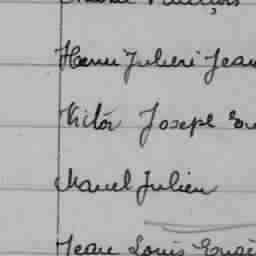 Henri Julien Jean
Victor Joseph
Marcel Julien
Jean Louis Eugè